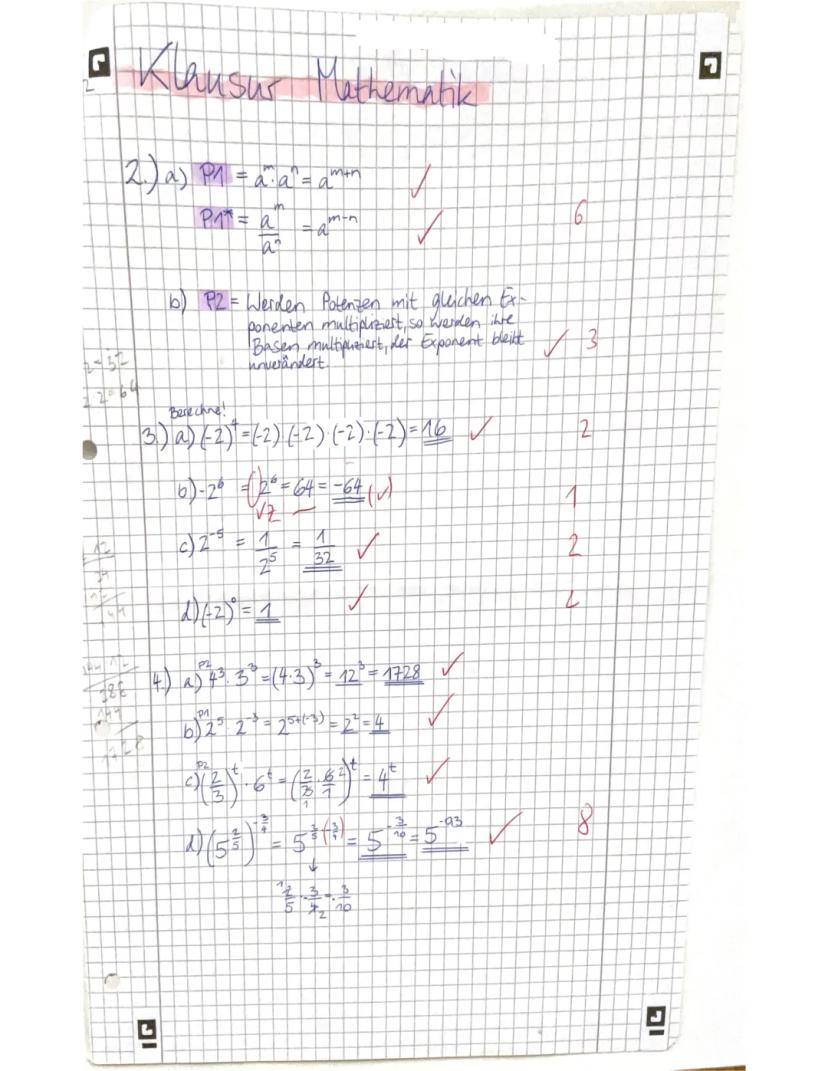 Klausur Mathematik
2.) a) P1 = a^m · a^n = a^(m+n) ✓
P1* = a^m/a^n = a^(m-n) ✓ 6
b) P2 = Werden Potenzen mit gleichen Ex-
ponenten multipliziert, so werden ihre
Basen multipliziert, der Exponent bleibt ✓ 3
unverändert.
Berechne!
3.) a) (-2)^4 = (-2)·(-2)·(-2)·(-2) = 16 ✓ 2
b) -2^6 = (2^6 = 64 = -64 (✓) 1
VZ
c) 2^-5 = 1/2^5 = 1/32 ✓ 2
d) (-2)^0 = 1 ✓ 2
4.) a) P2 4^3 · 3^3 = (4·3)^3 = 12^3 = 1728 ✓
b) P1 2^5 · 2^-3 = 2^(5+(-3)) = 2^2 = 4 ✓
c) P2 (2/3)^t · 6^t = (2/3 · 6/1)^t = 4^t ✓
d) (5^(2/5))^(-3/4) = 5^(2/5·(-3/4)) = 5^(-3/10) = 5^(-0,3) ✓ 8
↓
2/5 · 3/4 = 3/10